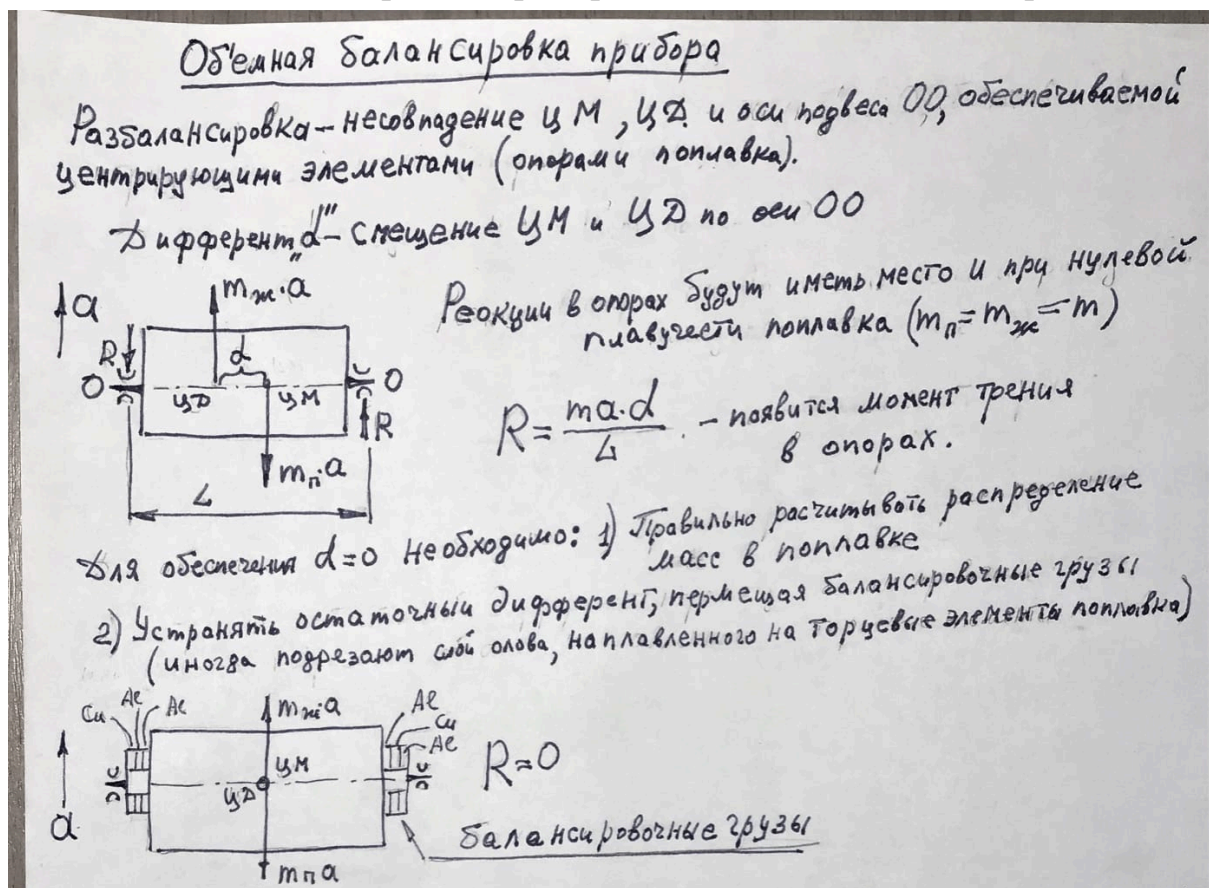 Об'емная балансировка прибора
Разбалансировка – несовпадение ЦМ, ЦД и оси подвеса OO, обеспечиваемой
центрирующими элементами (опорами поплавка).
Дифферент „d" – смещение ЦМ и ЦД по оси OO
a
mж·a
Реакции в опорах будут иметь место и при нулевой
плавучести поплавка (mп = mж = m)
R
d
O
ЦД
ЦМ
O
R
mп·a
L
R = ma·d / L – появится момент трения
в опорах.
Для обеспечения d=0 необходимо: 1) Правильно расчитывать распределение
масс в поплавке
2) Устранять остаточный дифферент, пермещая балансировочные грузы
(иногда подрезают слой олова, наплавленного на торцевые элементы поплавка)
Cu
Al
Al
mж·a
Al
Cu
Al
a
ЦМ
ЦД
R=0
балансировочные грузы
mп a